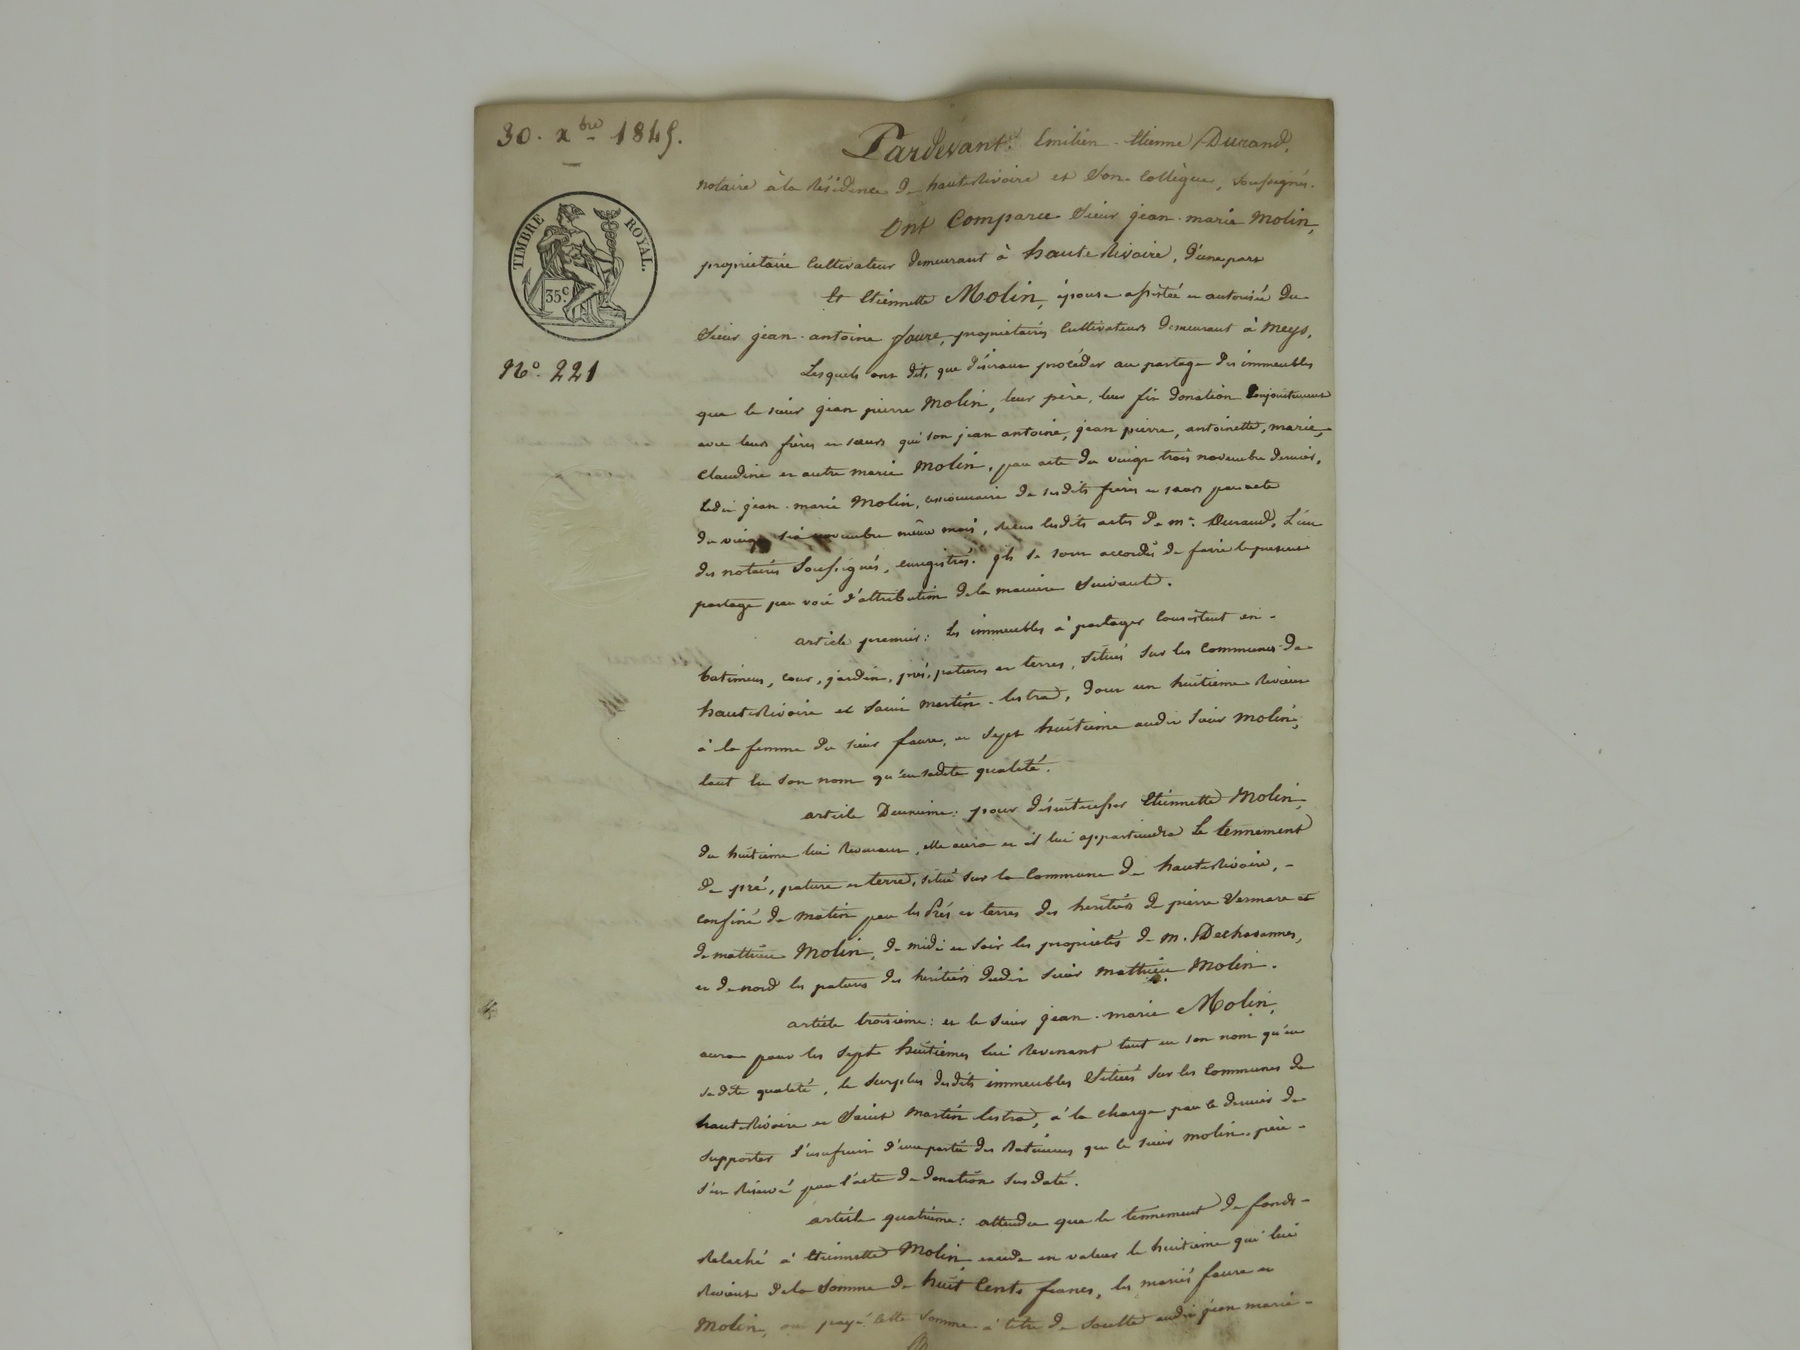 30. xbre 1845.
TIMBRE ROYAL.
35c.
No. 221
Pardevant Emilien-Etienne Durand,
notaire à la Résidence de hauteRivoire et Son Collègue, soussignés.
Ont Comparu Sieur jean-marie Molin,
propriétaire Cultivateur demeurant à hauteRivoire, d'une part
Et Etiennette Molin, épouse assistée et autorisée du
Sieur jean-antoine faure, propriétaires Cultivateurs demeurant à Meys.
Lesquels ont dit, que désirant procéder au partage des immeubles
que le sieur jean pierre Molin, leur père, leur fit donation Conjointement
avec leurs frères et sœurs qui son jean antoine, jean pierre, antoinette, marie,
Claudine et autre marie Molin, par acte du vingt trois novembre dernier,
Ledit jean-marie Molin, cessionnaire de sesdits frères et sœurs par acte
du vingt six novembre même mois, Recus lesdits actes de me. Durand, L'un
des notaires Soussignés, enregistrés. Ils se sont accordés de faire le présent
partage par voie d'attribution de la manière Suivante.
article premier: Les immeubles à partager Consistent en
batimens, cour, jardin, prés, patures et terres, Situés Sur les Communes de
hauteRivoire et Saint martin-lestra, dont un huitième Revient
à la femme du sieur faure, et Sept huitième audit Sieur Molin,
tant en Son nom qu'en sadite qualité.
article Deuxième: pour désintéresser Etiennette Molin
du huitième lui Revenant, elle aura et il lui appartiendra Le tennement
de pré, pature et terre, situé sur la Commune de hauteRivoire,
confiné de matin par les Prés et terres des héritiers de pierre Vermare et
de mathieu Molin, de midi et soir les propriétés de m. Dechavannes,
et de nord les patures des héritiers dudit Sieur mathieu Molin.
article troisième: et le sieur jean-marie Molin,
aura pour les Sept huitièmes lui Revenant tant en son nom qu'en
sadite qualité, le Surplus desdits immeubles Situés Sur les Communes de
hauteRivoire et Saint Martin lestra, à la charge par ce dernier de
Supporter l'usufruit d'une partie des Batimens que le sieur molin, père
s'en Réservé par l'acte de donation Susdaté.
article quatrième: attendu que le tennement de fonds
Relaché à Etiennette Molin excède en valeur le huitième qui lui
Revient de la Somme de huit Cents francs, les mariés faure et
Molin, ont payé Cette Somme à titre de Soulte audit jean marie